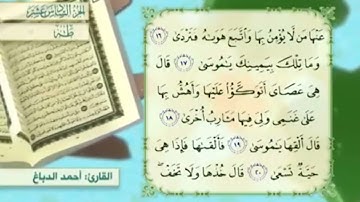 الجزء السادس عشر
طه
عَنْهَا مَن لَّا يُؤْمِنُ بِهَا وَاتَّبَعَ هَوَىٰهُ فَتَرْدَىٰ ١٦
وَمَا تِلْكَ بِيَمِينِكَ يَٰمُوسَىٰ ١٧ قَالَ
هِىَ عَصَاىَ أَتَوَكَّؤُا۟ عَلَيْهَا وَأَهُشُّ بِهَا
عَلَىٰ غَنَمِى وَلِىَ فِيهَا مَـَٔارِبُ أُخْرَىٰ ١٨
قَالَ أَلْقِهَا يَٰمُوسَىٰ ١٩ فَأَلْقَىٰهَا فَإِذَا هِىَ
حَيَّةٌ تَسْعَىٰ ٢٠ قَالَ خُذْهَا وَلَا تَخَفْ
القارئ: أحمد الدباغ